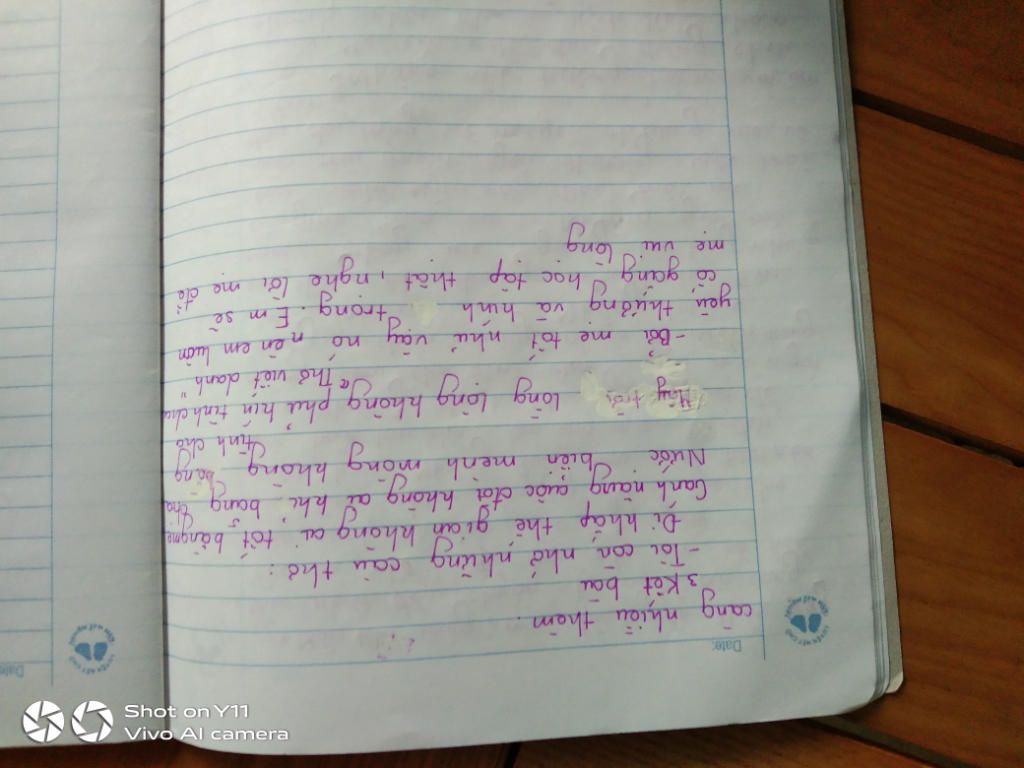 Date:
càng nhiều thêm.
3 Kết bài
- Tôi còn nhớ những câu thơ:
Đi khắp thế gian không ai tốt bằng mẹ
Gánh nặng cuộc đời không ai khổ bằng cha
Nước biển mênh mông không
đong
tình cha
Mây trời lồng lộng không phủ kín tình cha
"Thơ viết danh"
- Bởi mẹ tốt như vậy nó nên em luôn
yêu thương và kính trọng. Em sẽ
cố gắng học tập thật, nghe lời mẹ để
mẹ vui lòng
Date:
Shot on Y11
Vivo AI camera